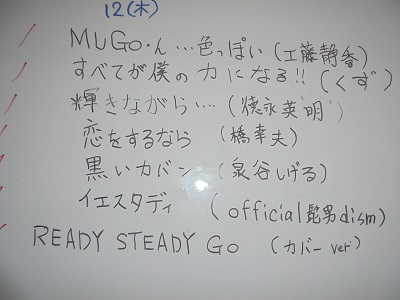 12(木)
MUGo・ん…色っぽい(工藤静香)
すべてが僕の力になる!!(くず)
輝きながら…(徳永英明)
恋をするなら(橋幸夫)
黒いカバン(泉谷しげる)
イエスタデイ(official髭男dism)
READY STEADY GO (カバーver)